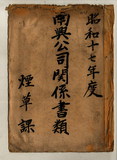 昭和十七年度
南興公司関係書類
煙草課